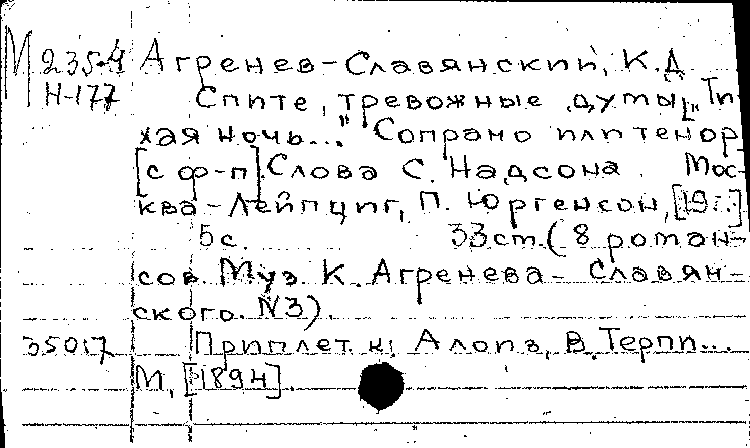 М 235-4 Агренев-Славянский, К.Д
Н-177 Спите, тревожные думы ["Ти-
хая ночь..." Сопрано или тенор
[с ф-п]. Слова С. Надсона. Мос-
ква-Лейпциг, П. Юргенсон, [19..]
5с. 33см. (8 роман-
сов. Муз. К. Агренева-Славян-
ского. N3).
35017 Приплет. к: Алоиз, В. Терпи...
М, [1894].